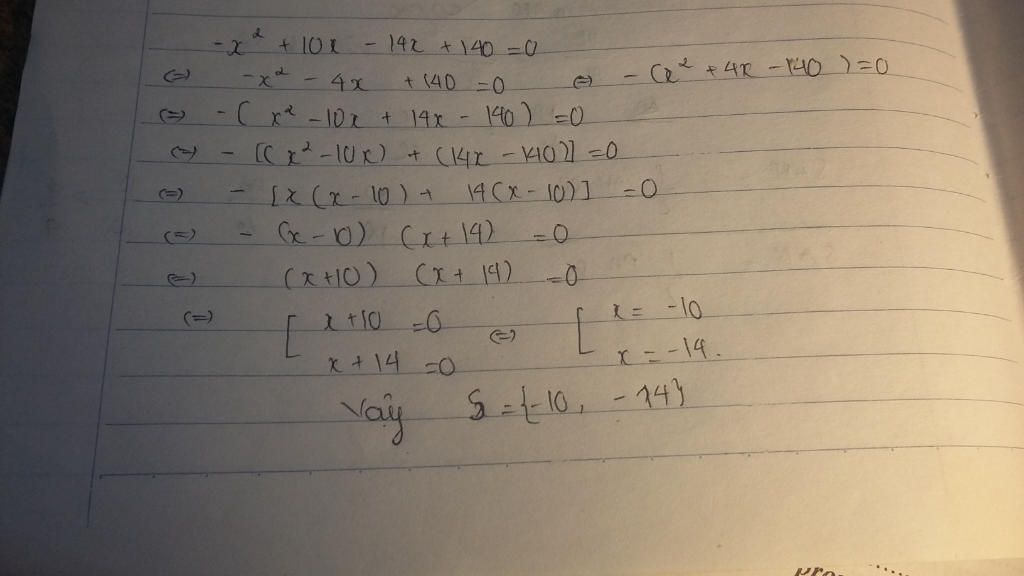 -x² + 10x - 14x + 140 = 0
(=) -x² - 4x + 140 = 0 (=) - (x² + 4x - 140) = 0
(=) - ( x² - 10x + 14x - 140) = 0
(=) - [( x² - 10x) + (14x - 140)] = 0
(=) - [x (x - 10) + 14(x - 10)] = 0
(=) - (x - 10) (x + 14) = 0
(=) (x + 10) (x + 14) = 0
(=) [ x + 10 = 0 (=) [ x = -10
x + 14 = 0 x = -14.
Vậy S = {-10, -14}